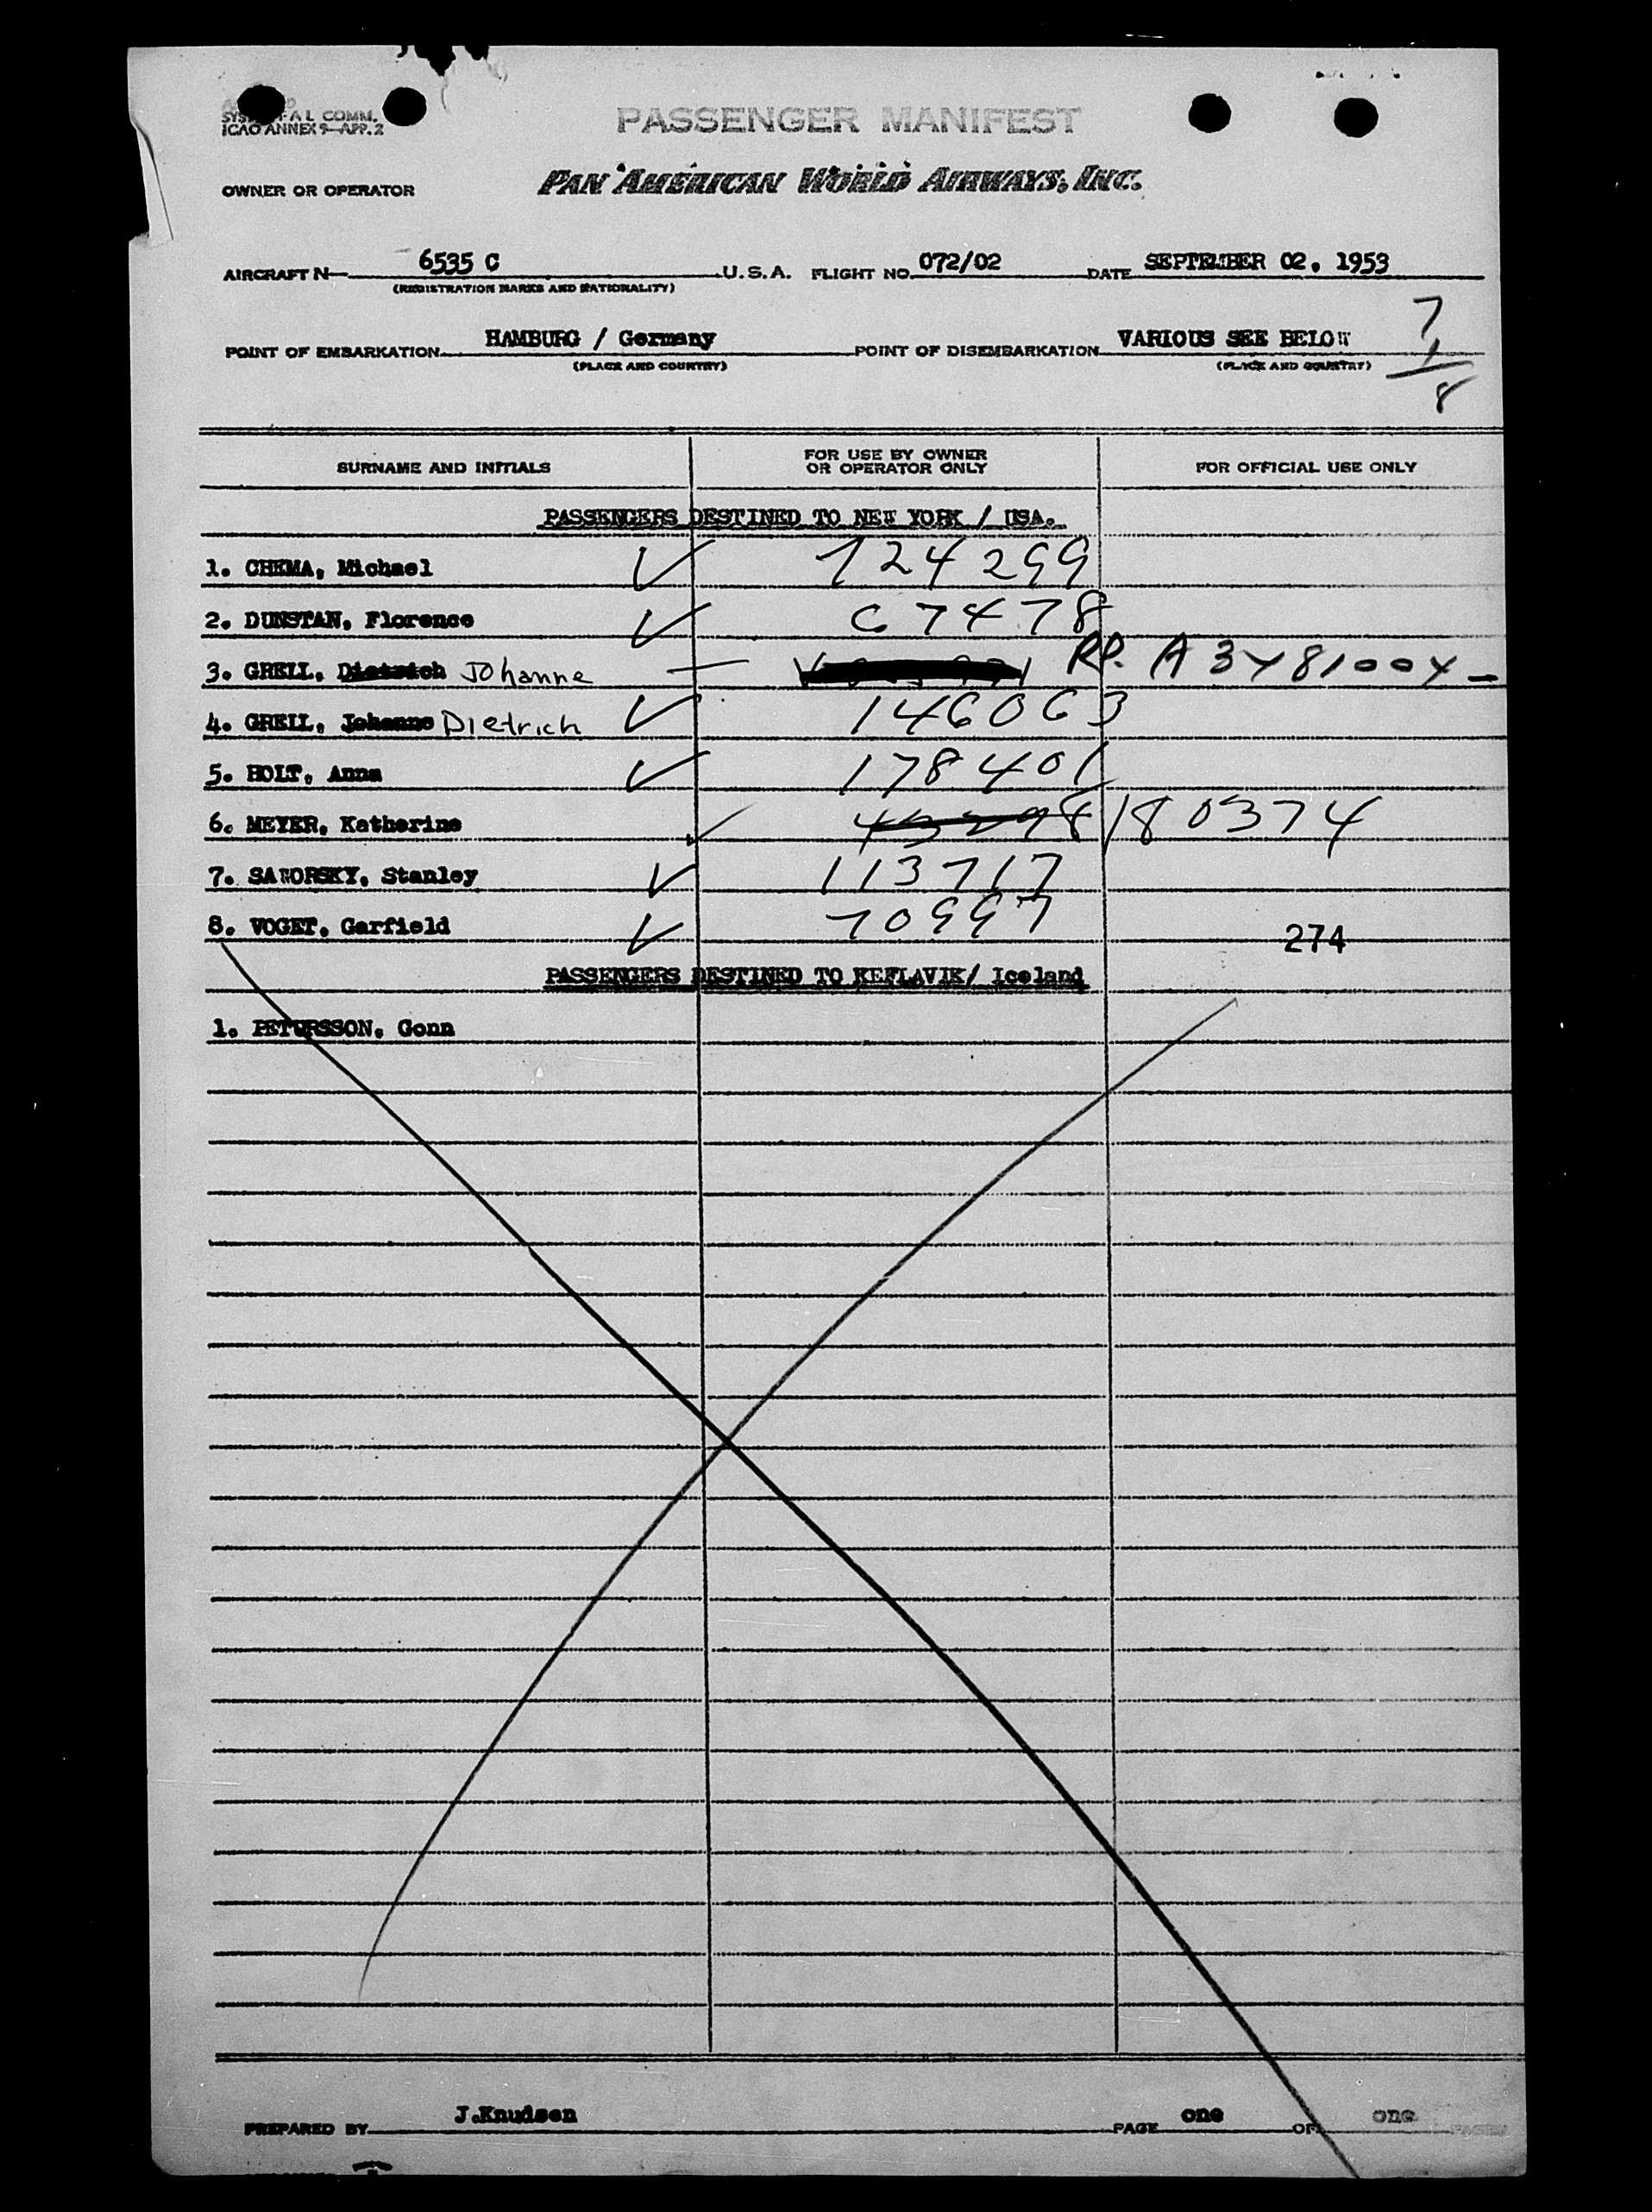 SYS GAL COMM.
ICAO ANNEX 9-APP. 2
PASSENGER MANIFEST
OWNER OR OPERATOR PAN AMERICAN WORLD AIRWAYS, INC.
AIRCRAFT N 6535 C U.S.A. FLIGHT NO. 072/02 DATE SEPTEMBER 02, 1953
(REGISTRATION MARKS AND NATIONALITY)
POINT OF EMBARKATION HAMBURG / Germany POINT OF DISEMBARKATION VARIOUS SEE BELOW
(PLACE AND COUNTRY) (PLACE AND COUNTRY)
7
1
8
SURNAME AND INITIALS FOR USE BY OWNER OR OPERATOR ONLY FOR OFFICIAL USE ONLY
PASSENGERS DESTINED TO NEW YORK / USA.
1. CHEMA, Michael 124299
2. DUNSTAN, Florence C 7478
3. GRELL, Dietrich Johanne RP. A 3481004
4. GRELL, Johanne Dietrich 146063
5. HOLT, Anna 178401
6. MEYER, Katherine 43298 180374
7. SAWORSKY, Stanley 113717
8. VOGET, Garfield 70997
274
PASSENGERS DESTINED TO KEFLAVIK/ Iceland
1. PETURSSON, Gonn
PREPARED BY J.Knudsen PAGE one OF one PAGES